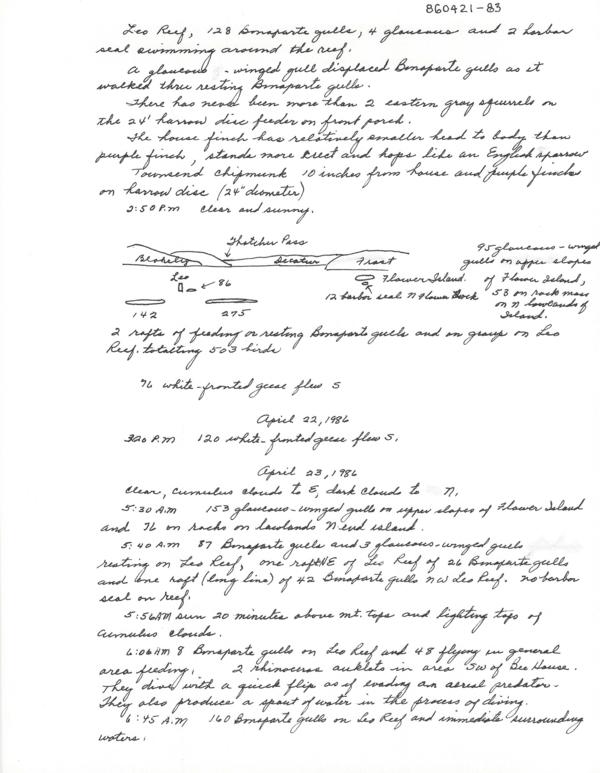 860421-83
Leo Reef, 128 Bonaparte gulls, 4 glaucous and 2 harbor
seal swimming around the reef.
A glaucous - winged gull displaced Bonaparte gulls as it
walked thru resting Bonaparte gulls.
There has never been more than 2 eastern gray squirrels on
the 24' harrow disc feeder on front porch.
The house finch has relatively smaller head to body than
purple finch, stands more erect and hops like an English sparrow
Townsend chipmunk 10 inches from house and purple finchs
on harrow disc (24" diometer)
2:50 P.M clear and sunny.
Thatcher Pass
Blakely Decatur Frost
Leo
86
142 275
Flower Island.
12 harbor seal N Flower Rock
95 glaucous - winged
gulls on upper slopes
of Flower Island,
53 on rock mass
on N lowlands of
Island.
2 rafts of feeding or resting Bonaparte gulls and on group on Leo
Reef. totalting 503 birds
76 white-fronted geese flew S
April 22, 1986
320 P.M 120 white-fronted geese flew S.
April 23, 1986
Clear, cumulus clouds to E, dark clouds to N,
5:30 A.M 153 glaucous-winged gulls on upper slopes of Flower Island
and 76 on rocks on lowlands N end island.
5:40 A.M 87 Bonaparte gulls and 3 glaucous-winged gulls
resting on Leo Reef, one raft NE of Leo Reef of 26 Bonaparte gulls
and one raft (long line) of 42 Bonaparte gulls NW Leo Reef. no harbor
seal on reef.
5:56AM sun 20 minutes above mt. tops and lighting tops of
cumulus clouds.
6:06AM 8 Bonaparte gulls on Leo Reef and 48 flying in general
area feeding. 2 rhinoceros auklets in area SW of Bee House.
They dive with a quick flip as if evading an aerial predator.
They also produce a spout of water in the process of diving.
6:45 A.M 160 Bonaparte gulls on Leo Reef and immediate surrounding
waters.